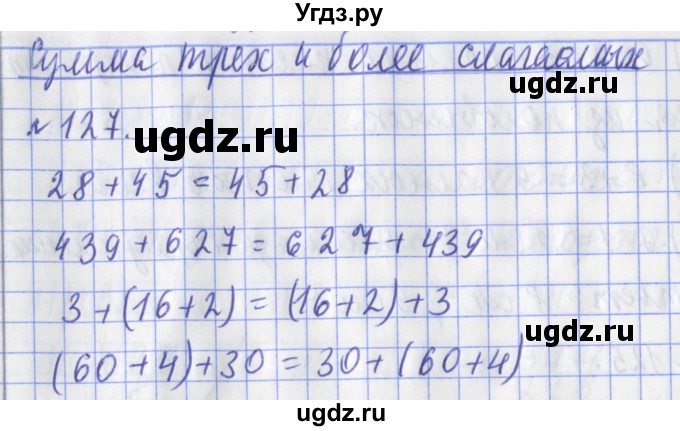 Угдз.ру
Сумма трех и более слагаемых
ugdz.ru
№127.
ugdz.ru
28+45=45+28
439+627=627+439
3+(16+2)=(16+2)+3
ugdz.ru
(60+4)+30=30+(60+4)
ugdz.ru